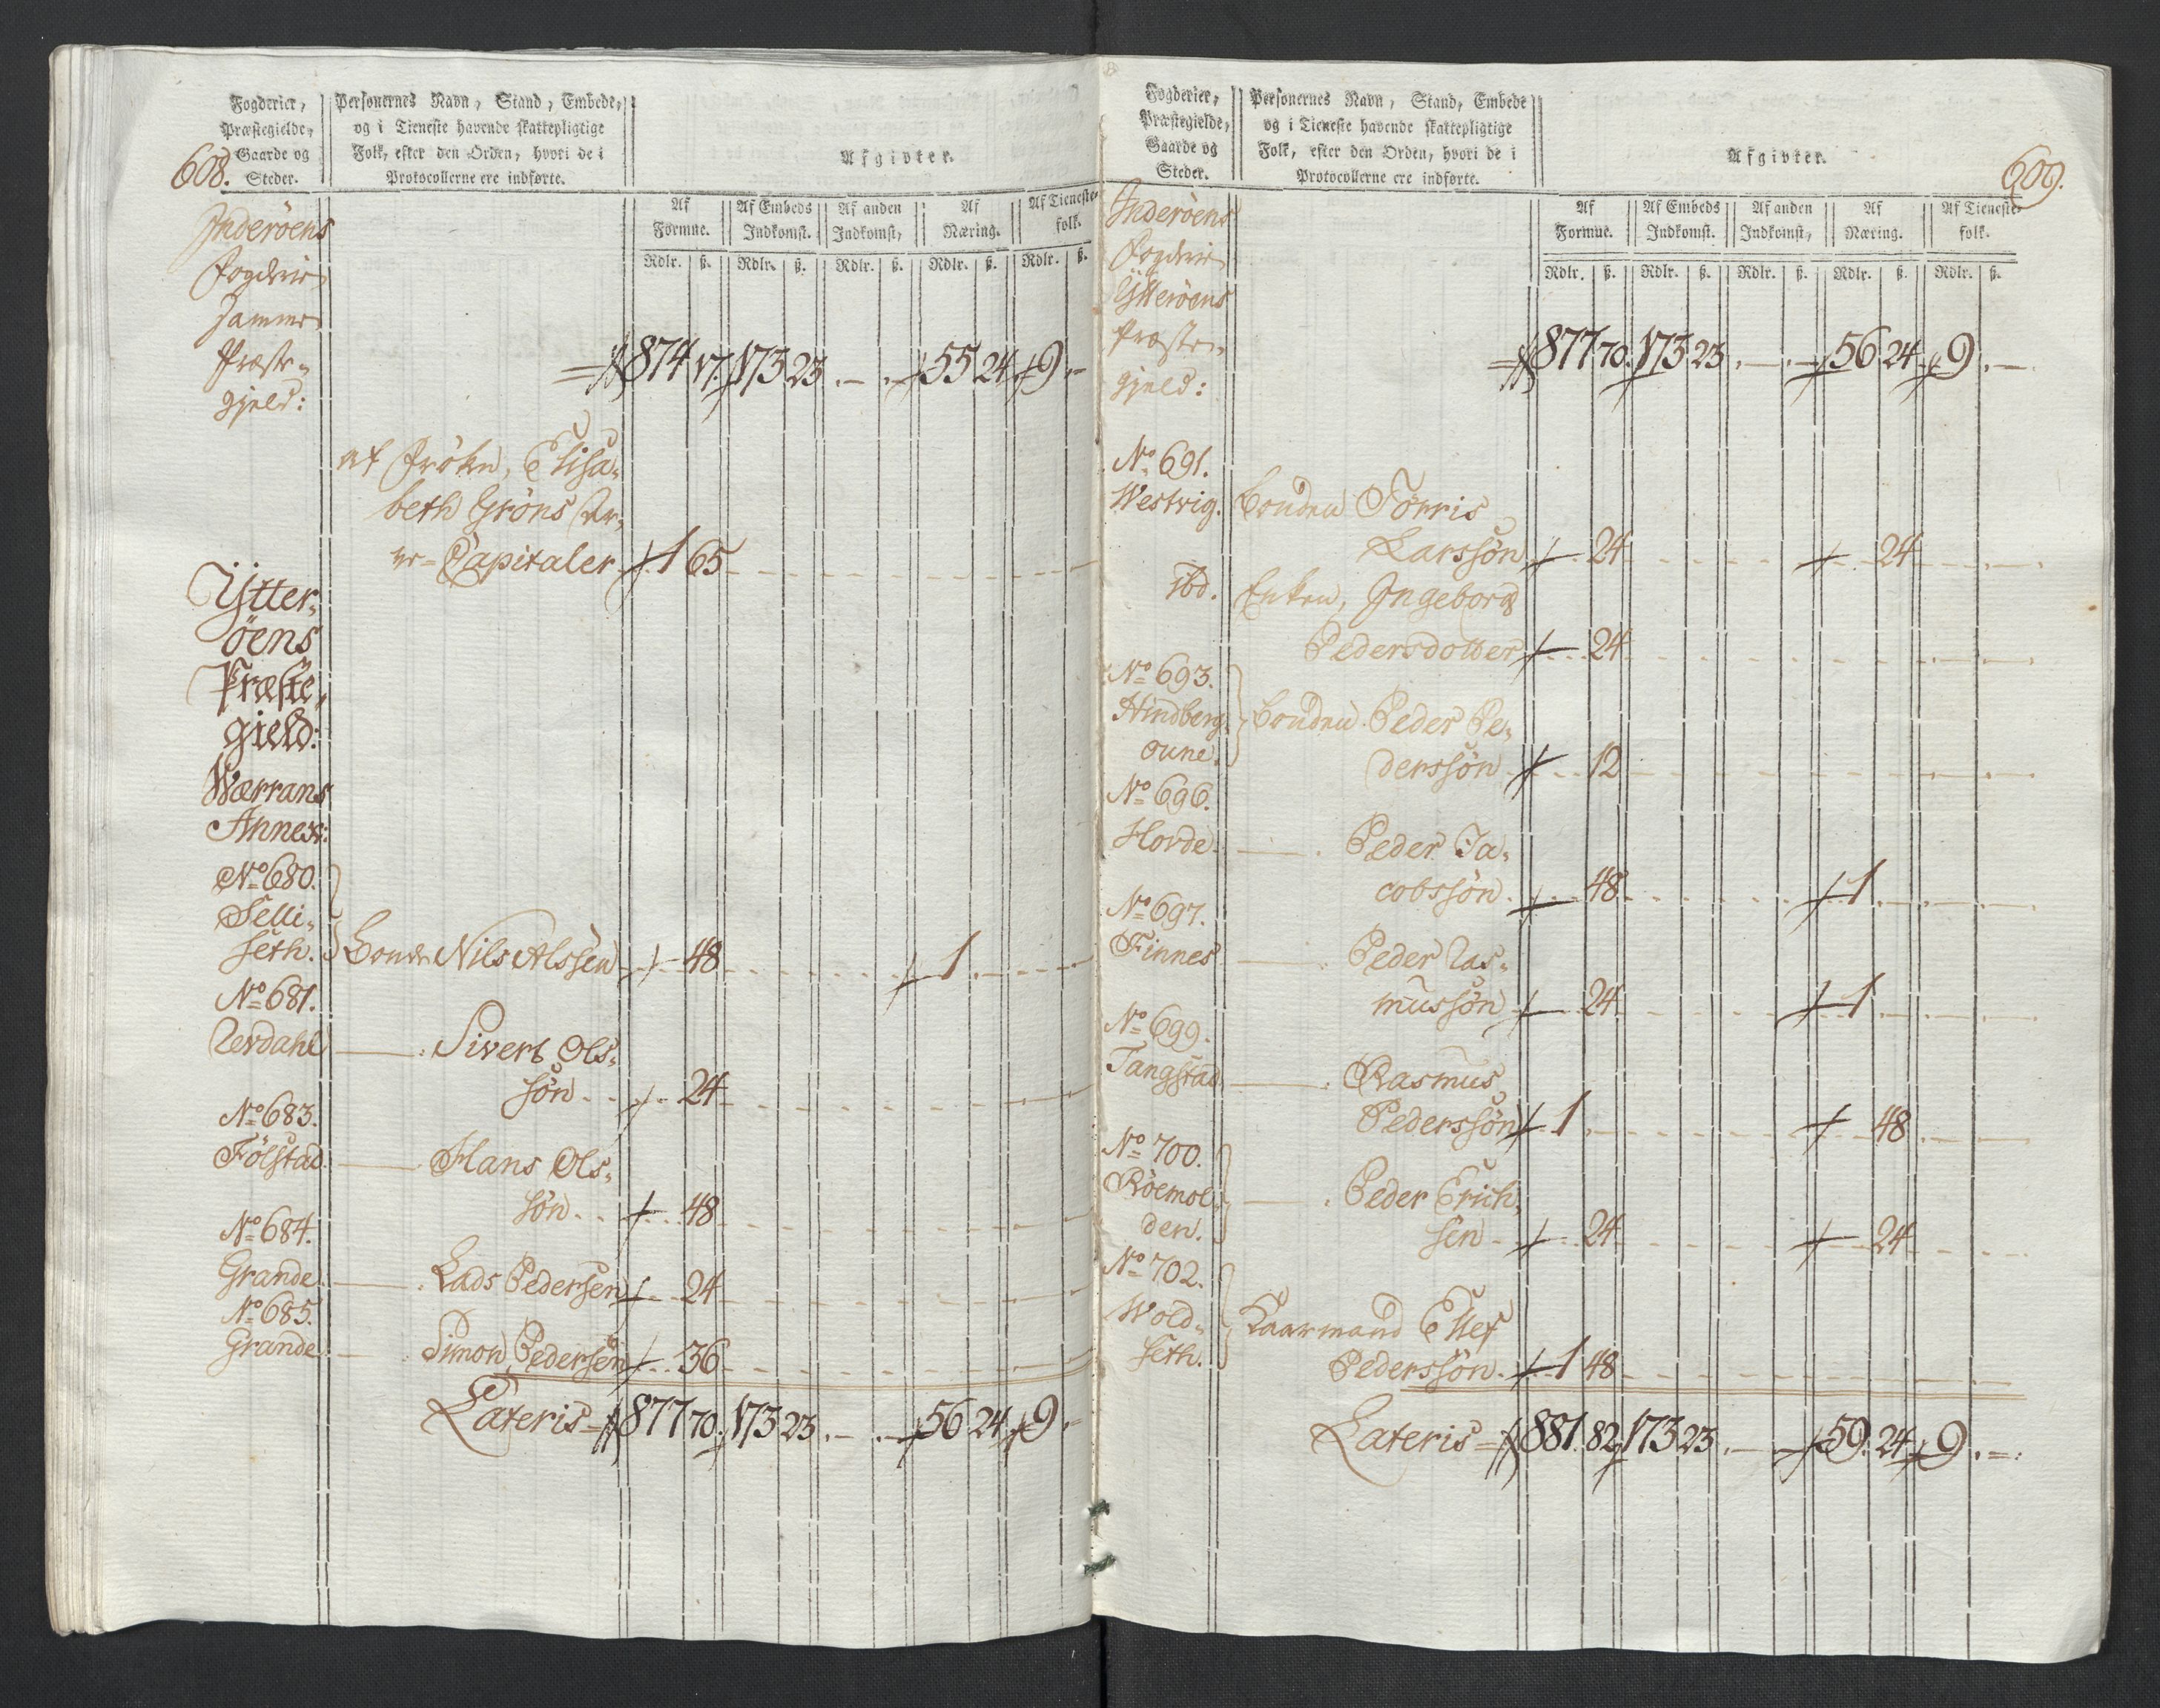 608.
Fogderier,
Præstegielde,
Gaarde og
Steder.
Personernes Navn, Stand, Embede,
og i Tieneste havende skattepligtige
Folk, efter den Orden, hvori de i
Protocollerne ere indførte.
Afgivter.
Af Formue. Af Embeds Indkomst. Af anden Indkomst, Af Næring. Af Tieneste-folk.
Rdlr. ß. Rdlr. ß. Rdlr. ß. Rdlr. ß. Rdlr. ß.
Inderöens
Fogderie
Præste-
gjeld:
874 17. 173 23 . — . — 55 24 9 . —
af Frökn, Elisa-
beth Gröns
Capitaler 1 65
Ytter-
öens
Præste-
gield:
Wærrans
Annex:
No 680.
Selli-
seth. Bonde Nils Alssen 48 1
No 681.
Sivert Ols-
sön 24
No 683.
Fölstad Hans Ols-
sön 48
No 684.
Grande Lads Pedersen 24
No 685.
Grande Simon Pedersen 36
Lateris 877 70. 173 23 . — . — 56 24 9 . —
609.
Fogderier,
Præstegielde,
Gaarde og
Steder.
Personernes Navn, Stand, Embede
og i Tieneste havende skattepligtige
Folk, efter den Orden, hvori de i
Protocollerne ere indførte.
Afgivter.
Af Formue. Af Embeds Indkomst. Af anden Indkomst, Af Næring. Af Tieneste-folk.
Rdlr. ß. Rdlr. ß. Rdlr. ß. Rdlr. ß. Rdlr. ß.
Inderöens
Fogderie
Ytteröens
Præste-
gjeld:
877 70. 173 23 . — . — 56 24 9 . —
No 691.
Westvig. Bonden Törris
Larssön 24 24
ibd. Enken, Ingeborg
Pedersdotter 24
No 693.
Hindberg- Bonden Peder Pe-
oune. derssön 12
No 696.
Horde Peder Ja-
cobssön 48 1
No 697.
Finnes Peder Ras-
mussön 24 1
No 699.
Tangstad Rasmus
Pederssön 1 48
No 700.
Röemol- Peder Erich-
den. sen 24 24
No 702.
Wold- Ellef
seth. Pederssön 1 48
Lateris 881. 82 173 23 . — — 59. 24 9 . —